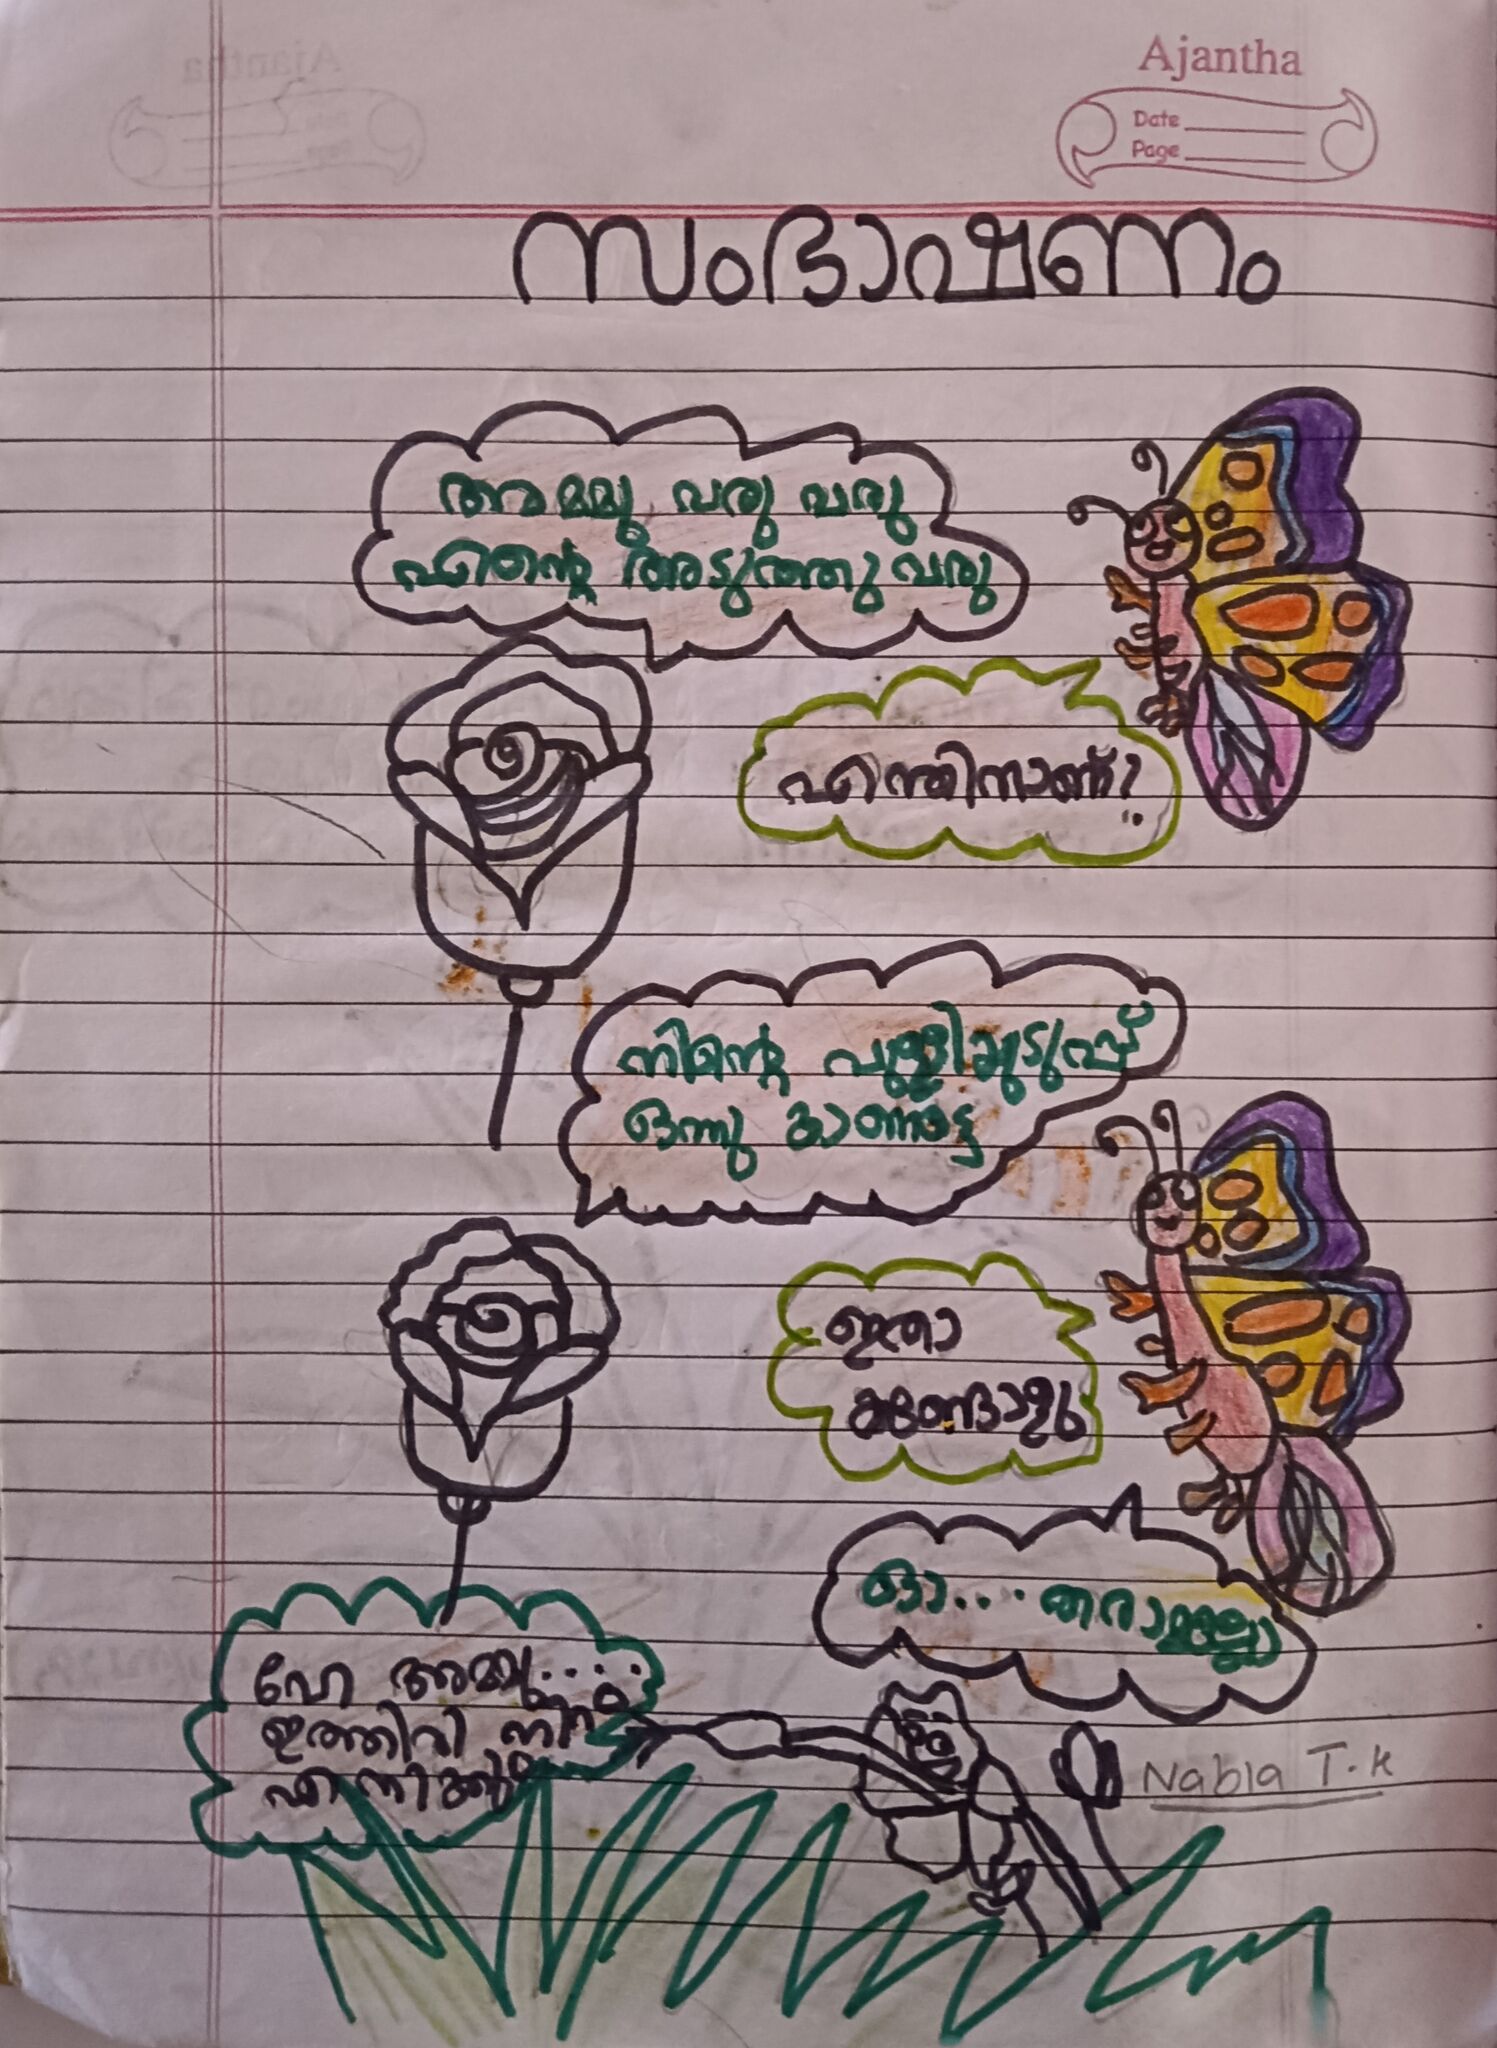 Ajantha
Date
Page
സംഭാഷണം
അമ്മു വരു വരു
എന്റെ അടുത്തു വരു
എന്തിനാണ്?
നിന്റെ പുള്ളിയുടുപ്പ്
ഒന്നു കാണട്ടെ
ഇതാ
കണ്ടോളു
ഓ... തരാമല്ലോ
ഹേ അമ്മു....
ഇത്തിരി
എനിക്കു
Nabla T.K